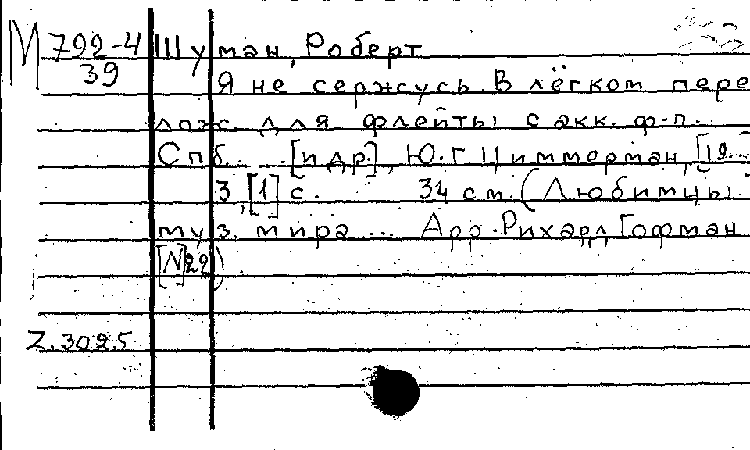 М 792-4 Шуман, Роберт
39 Я не сержусь. В лёгком пере
лож. для флейты с акк. ф-п.
Спб. ... [и др.], Ю. Г. Циммерман, [19...
3, [1] с. 34 см. (Любимцы
муз. мира ... Арр. Рихард Гофман
[N]22)
Z. 3025